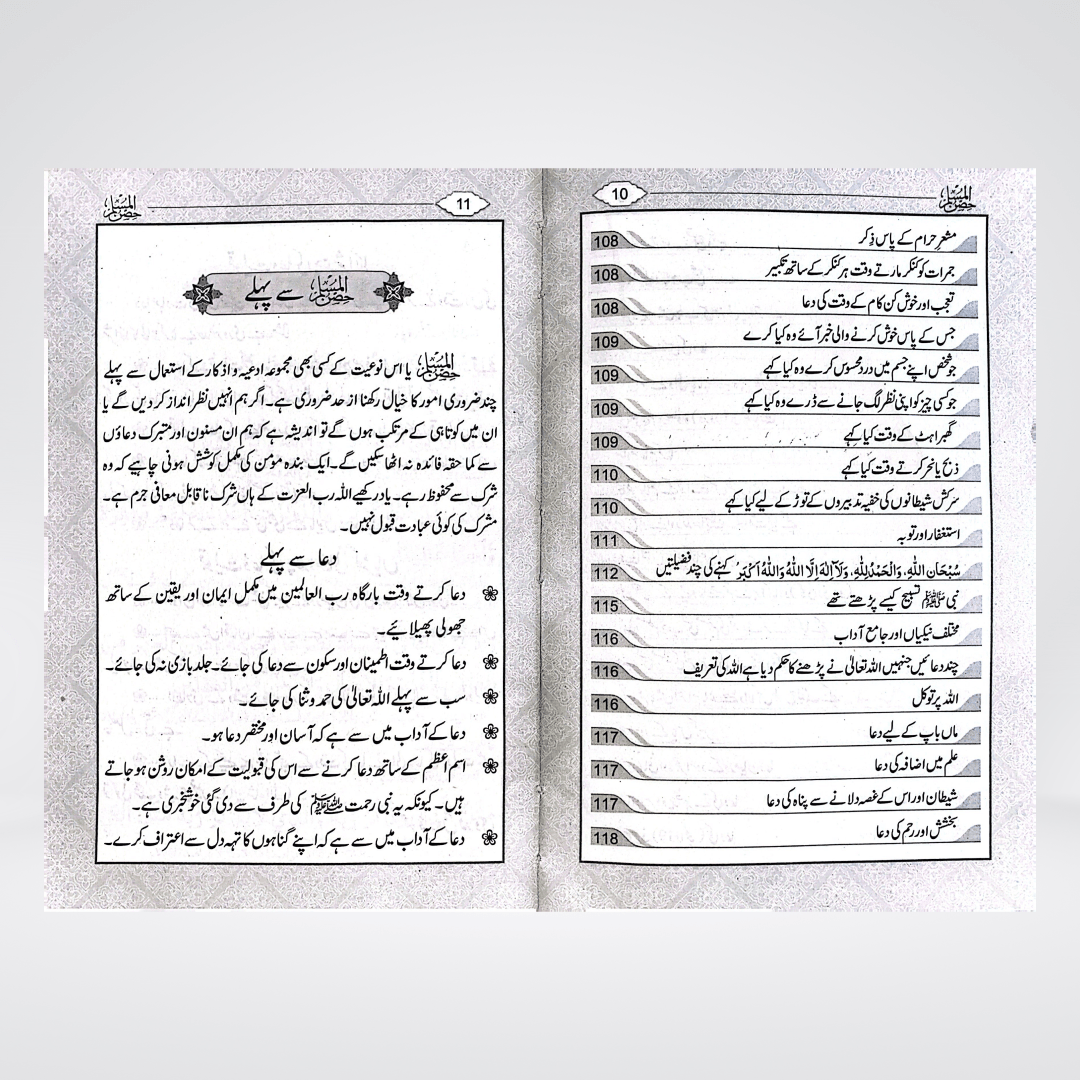 10
حصن المسلم
مشعرِ حرام کے پاس ذِکر 108
جمرات کو کنکر مارتے وقت ہر کنکر کے ساتھ تکبیر 108
تعجب اور خوش کن کام کے وقت کی دعا 108
جس کے پاس خوش کرنے والی خبر آئے وہ کیا کرے 109
جو شخص اپنے جسم میں درد محسوس کرے وہ کیا کہے 109
جو کسی چیز کو اپنی نظر لگ جانے سے ڈرے وہ کیا کہے 109
گھبراہٹ کے وقت کیا کہے 109
ذبح یا نحر کرتے وقت کیا کہے 110
سرکش شیطانوں کی خفیہ تدبیروں کے توڑ کے لیے کیا کہے 110
استغفار اور توبہ 111
سُبْحَانَ اللّٰہِ، وَالْحَمْدُلِلّٰہِ، وَلَآ اِلٰہَ اِلَّا اللّٰہُ وَاللّٰہُ اَکْبَرُ کہنے کی چند فضیلتیں 112
نبی ﷺ تسبیح کیسے پڑھتے تھے 115
مختلف نیکیاں اور جامع آداب 116
چند دعائیں جنہیں اللہ تعالیٰ نے پڑھنے کا حکم دیا ہے اللہ کی تعریف 116
اللہ پر توکل 116
ماں باپ کے لیے دعا 117
علم میں اضافہ کی دعا 117
شیطان اور اس کے غصہ دلانے سے پناہ کی دعا 117
بخشش اور رحم کی دعا 118
11
حصن المسلم
حصن المسلم سے پہلے
حصن المسلم یا اس نوعیت کے کسی بھی مجموعہ ادعیہ و اذکار کے استعمال سے پہلے
چند ضروری امور کا خیال رکھنا از حد ضروری ہے۔ اگر ہم انہیں نظر انداز کر دیں گے یا
ان میں کوتاہی کے مرتکب ہوں گے تو اندیشہ ہے کہ ہم ان مسنون اور متبرک دعاؤں
سے کما حقہ فائدہ نہ اٹھا سکیں گے۔ ایک بندہ مومن کی مکمل کوشش ہونی چاہیے کہ وہ
شرک سے محفوظ رہے۔ یاد رکھیے اللہ رب العزت کے ہاں شرک ناقابل معافی جرم ہے۔
مشرک کی کوئی عبادت قبول نہیں۔
دعا سے پہلے
دعا کرتے وقت بارگاہ رب العالمین میں مکمل ایمان اور یقین کے ساتھ
جھولی پھیلائیے۔
دعا کرتے وقت اطمینان اور سکون سے دعا کی جائے۔ جلد بازی نہ کی جائے۔
سب سے پہلے اللہ تعالیٰ کی حمد و ثنا کی جائے۔
دعا کے آداب میں سے ہے کہ آسان اور مختصر دعا ہو۔
اسم اعظم کے ساتھ دعا کرنے سے اس کی قبولیت کے امکان روشن ہو جاتے
ہیں۔ کیونکہ یہ نبی رحمت ﷺ کی طرف سے دی گئی خوشخبری ہے۔
دعا کے آداب میں سے ہے کہ اپنے گناہوں کا تہہ دل سے اعتراف کرے۔